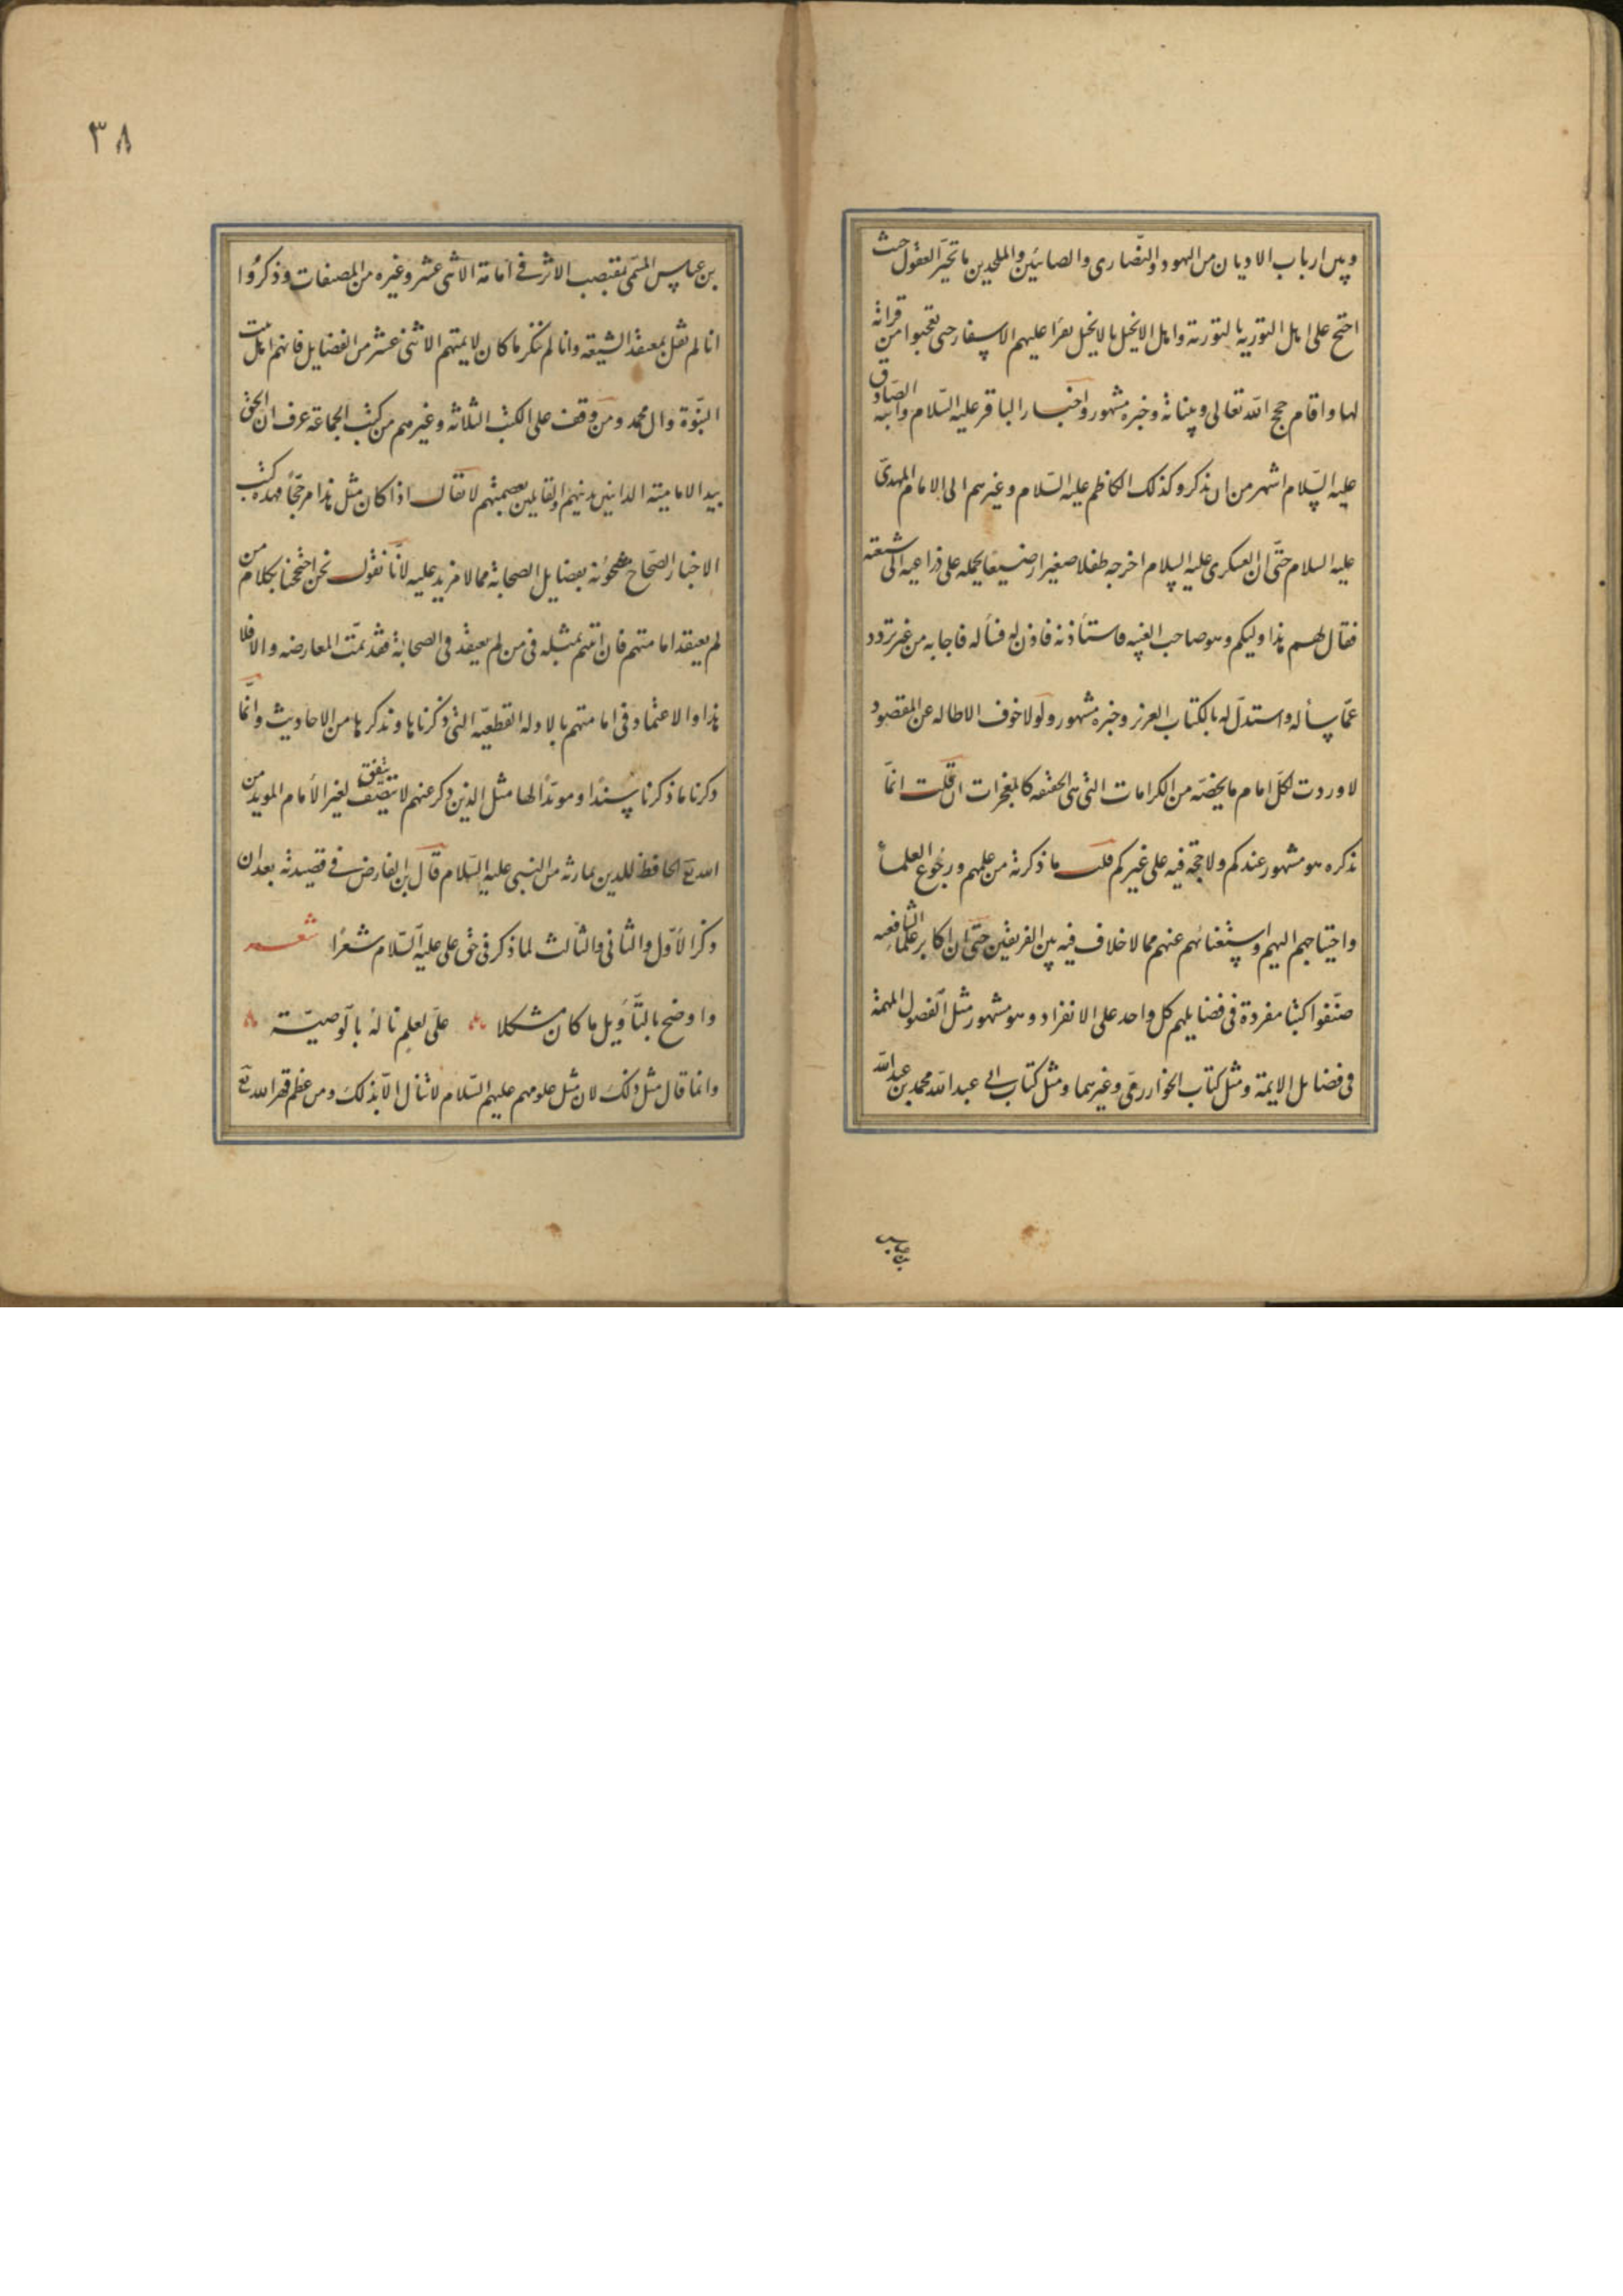 وبين ارباب الاديان من اليهود والنّصارى والصابئين والملحدين ما تحيّر العقول حيث
احتج على اهل التورية بالتورية واهل الانجيل بالانجيل يقرأ عليهم الاسفار حتى تعجبوا من قرائة
لها واقام حجج الله تعالى وبيناته وخبره مشهور واخبار الباقر عليه السّلام وابنه الصّادق
عليه السّلام اشهر من ان يذكر وكذلك الكاظم عليه السّلام وغيرهم الى الامام المهدىّ
عليه السلام حتّى ان العسكرى عليه السلام اخرجه طفلا صغيرا رضيعا يحمله على ذراعيه الى شيعته
فقال لهم هذا وليكم وهو صاحب الغيبه فاستأذنه فاذن له فسأله فاجابه من غير تردد
عمّا سأله واستدلّ له بالكتاب العزيز وخبره مشهور ولولا خوف الاطاله عن المقصود
لاوردت لكلّ امام ما يخصّه من الكرامات التى هى الحقيقه كالمعجزات ان قلت انمّا
تذكره هو مشهور عندكم ولا حجة فيه على غيركم قلت ما ذكرته من علمهم ورجُوع العلمأ
واحتياجهم اليهم واستغنائهم عنهم مما لا خلاف فيه بين الفريقين حتّى ان اكابر علماء الشافعيه
صنّفوا كتبا مفردة فى فضايلهم كل واحد على الانفراد وهو مشهور مثل الفصول المهمة
فى فضايل الايمة ومثل كتاب الخوارزمى وغيرهما ومثل كتاب ابى عبد الله محمد بن عبد الله
بن عياس
٣٨
بن عباس المسمّى بمقتضب الاثر فى امامة الاثنى عشر وغيره من المصنفات وذكرُوا
انا لم نقل بمعتقد الشيعه وانا لم ننكر ما كان لايمتهم الاثنى عشر من الفضايل فانهم اهل بيت
النبّوة وال محمد ومن وقف على الكتب الثلاثه وغيرهم من كتب الجماعة عرف ان الحق
بيد الامامية الداينين بدينهم والقايلين بعصمتهم لا يقال اذا كان مثل هذا مرجّحاً فهذه كتب
الاخبار الصّحاح مشحُونة بفضايل الصحابة مما لا مزيد عليه لأنّا نقول نحن احتججنا بكلام من
لم يعتقد امامتهم فان اتيتم بمثله فى من لم يعتقد فى الصحابة فقد تمّت المعارضه والا فلا
هذا والاعتماد فى امامتهم بالادله القطعيّه التى ذكرناها ونذكرها من الاحاديث وانمّا
ذكرنا ما ذكرنا سندًا ومويّدًا لها مثل الذين ذكر عنهم لا يتصف يتفق لغير الأمام المويد من
الله تعَ الحافظ للدين بما رثه من النبى عليه السّلام قال بن الفارض فى قصيدته بعد ان
ذكر الأوّل والثانى والثالث لما ذكر فى حق على عليه السّلام شعرًا شعر
واوضح بالتّأويل ما كان مشكلا علىّ بعلمٍ نالهُ بالوصيّة
وانما قال مثل ذلك لان مثل علومهم عليهم السّلام لا تنال الاّ بذلك ومن عظم قهر الله تعَ